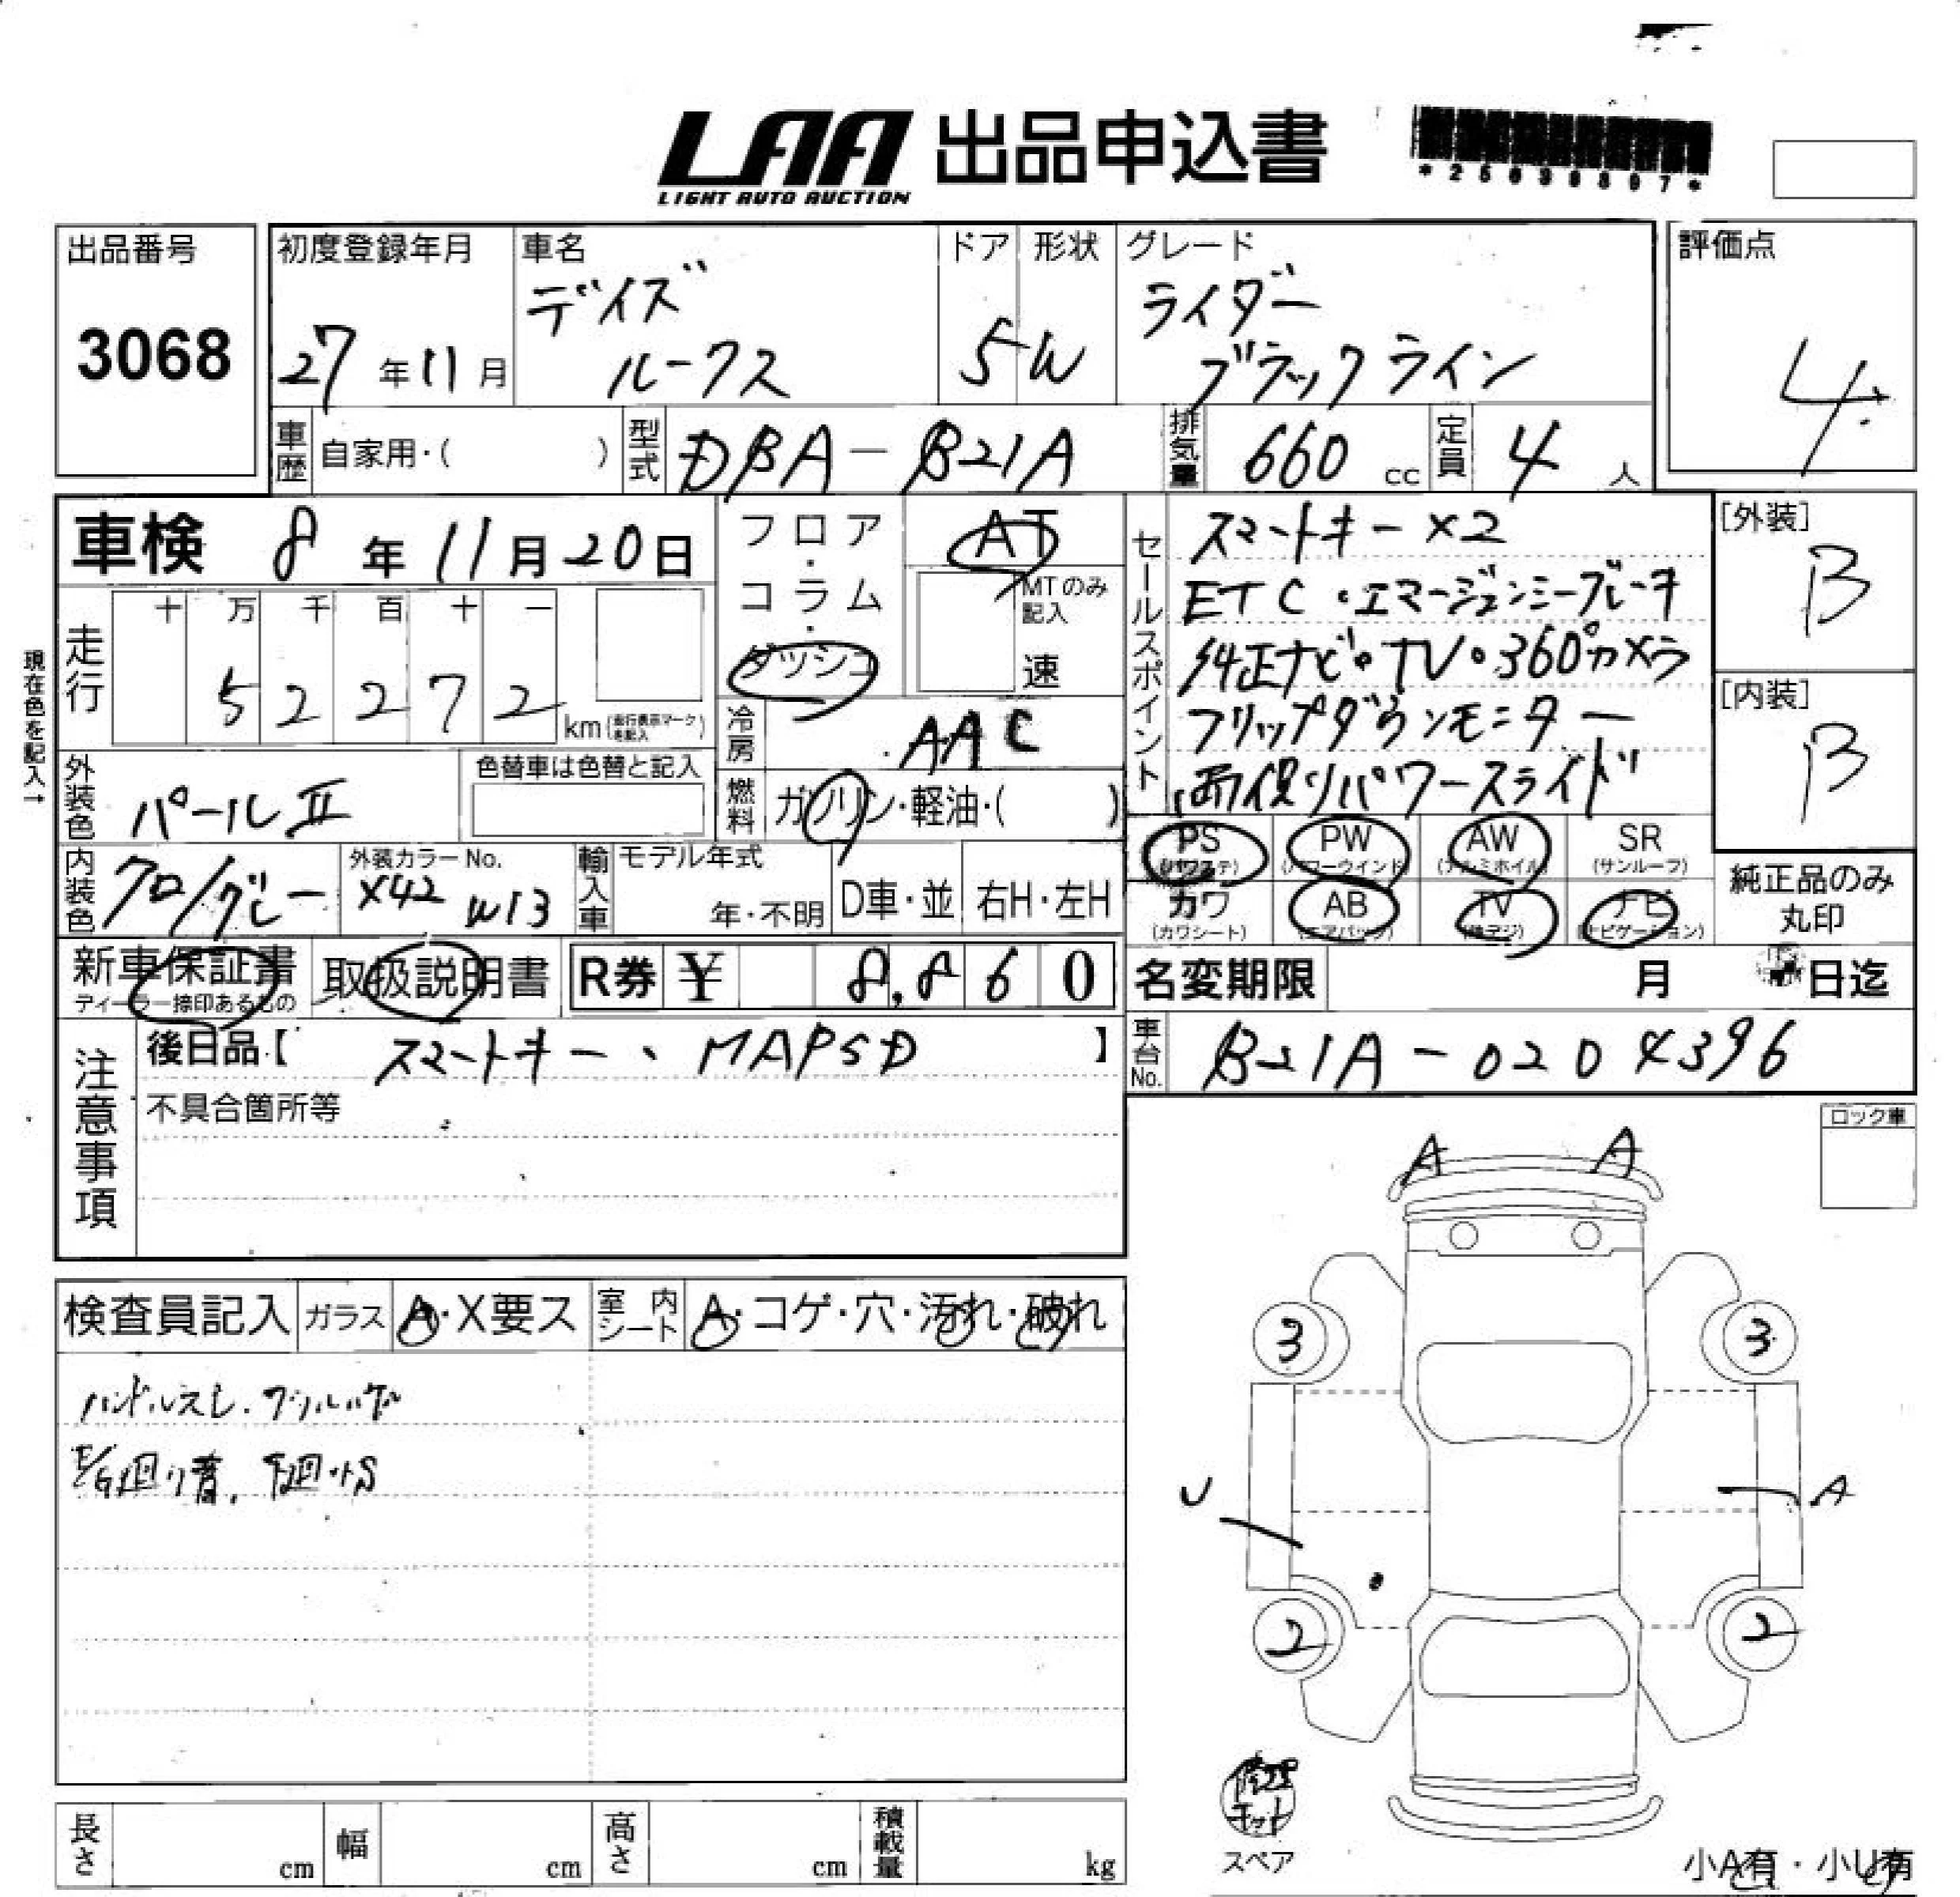 LAA 出品申込書
LIGHT AUTO AUCTION
出品番号
3068
初度登録年月
27年11月
車名
デイズ
ルークス
ドア
5
形状
W
グレード
ライダー
ブラックライン
評価点
4
車歴
自家用・( )
型式
DBA-B21A
排気量
660 cc
定員
4 人
車検 8年11月20日
現在色を記入→
走行
十 万 千 百 十 一
5 2 2 7 2 km
フロア・コラム・ダッシュ
AT
MTのみ記入
速
冷房
AAC
燃料
ガソリン・軽油・( )
セールスポイント
スマートキー×2
ETC・エマージェンシーブレーキ
純正ナビ・TV・360°カメラ
フリップダウンモニター
両側パワースライド
[外装]
B
[内装]
B
外装色
パールⅡ
色替車は色替と記入
内装色
クロ/グレー
外装カラーNo.
X42 W13
輸入車
モデル年式
年・不明
D車・並
右H・左H
PS
(パワステ)
PW
(パワーウインド)
AW
(アルミホイル)
SR
(サンルーフ)
カワ
(カワシート)
AB
(エアバック)
TV
(地デジ)
ナビ
(ナビゲーション)
純正品のみ
丸印
新車保証書
ディーラー捺印あるもの
取扱説明書
R券 ¥ 8,860
名変期限 月 日迄
注意事項
後日品【 スマートキー、MAPSD 】
不具合箇所等
車台No.
B21A-0204396
ロック車
A A
3 3
U A
2 2
検査員記入
ガラス
A・X要ス
室内シート
A・コゲ・穴・汚れ・破れ
ハンドルスレ.
E/G廻り番. 下廻サS
修理キット
スペア
小A有・小U有
長さ cm
幅 cm
高さ cm
積載量 kg